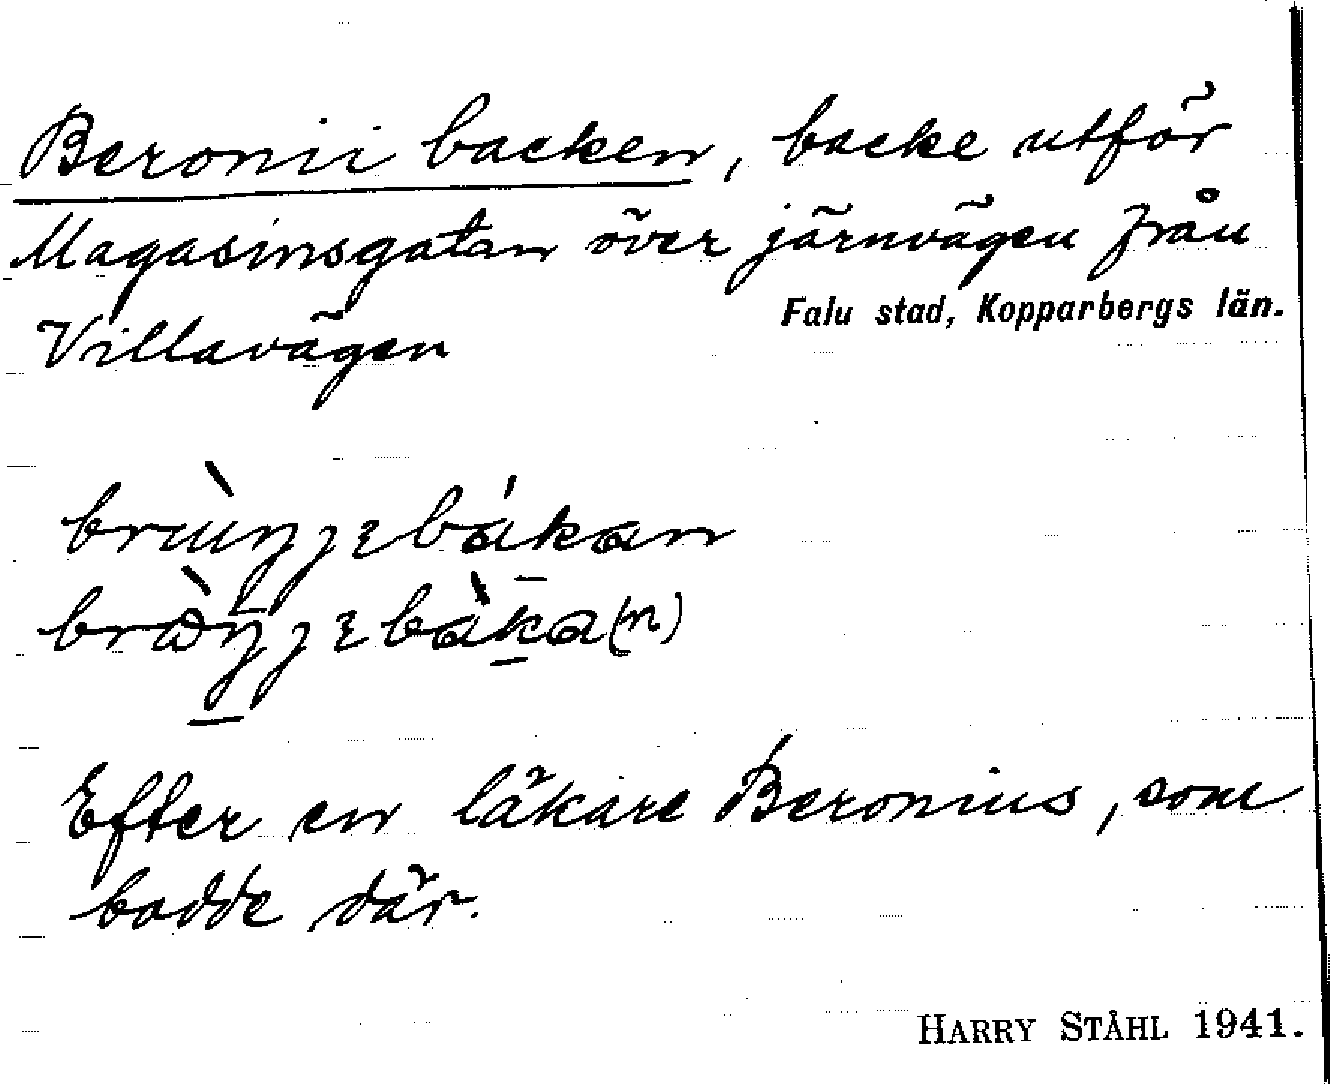 Beronii backen, backe utför
Magasinsgatan över järnvägen från
Falu stad, Kopparbergs län.
Villavägen
Efter en läkare Beronius, som
bodde där.
HARRY STÅHL 1941.